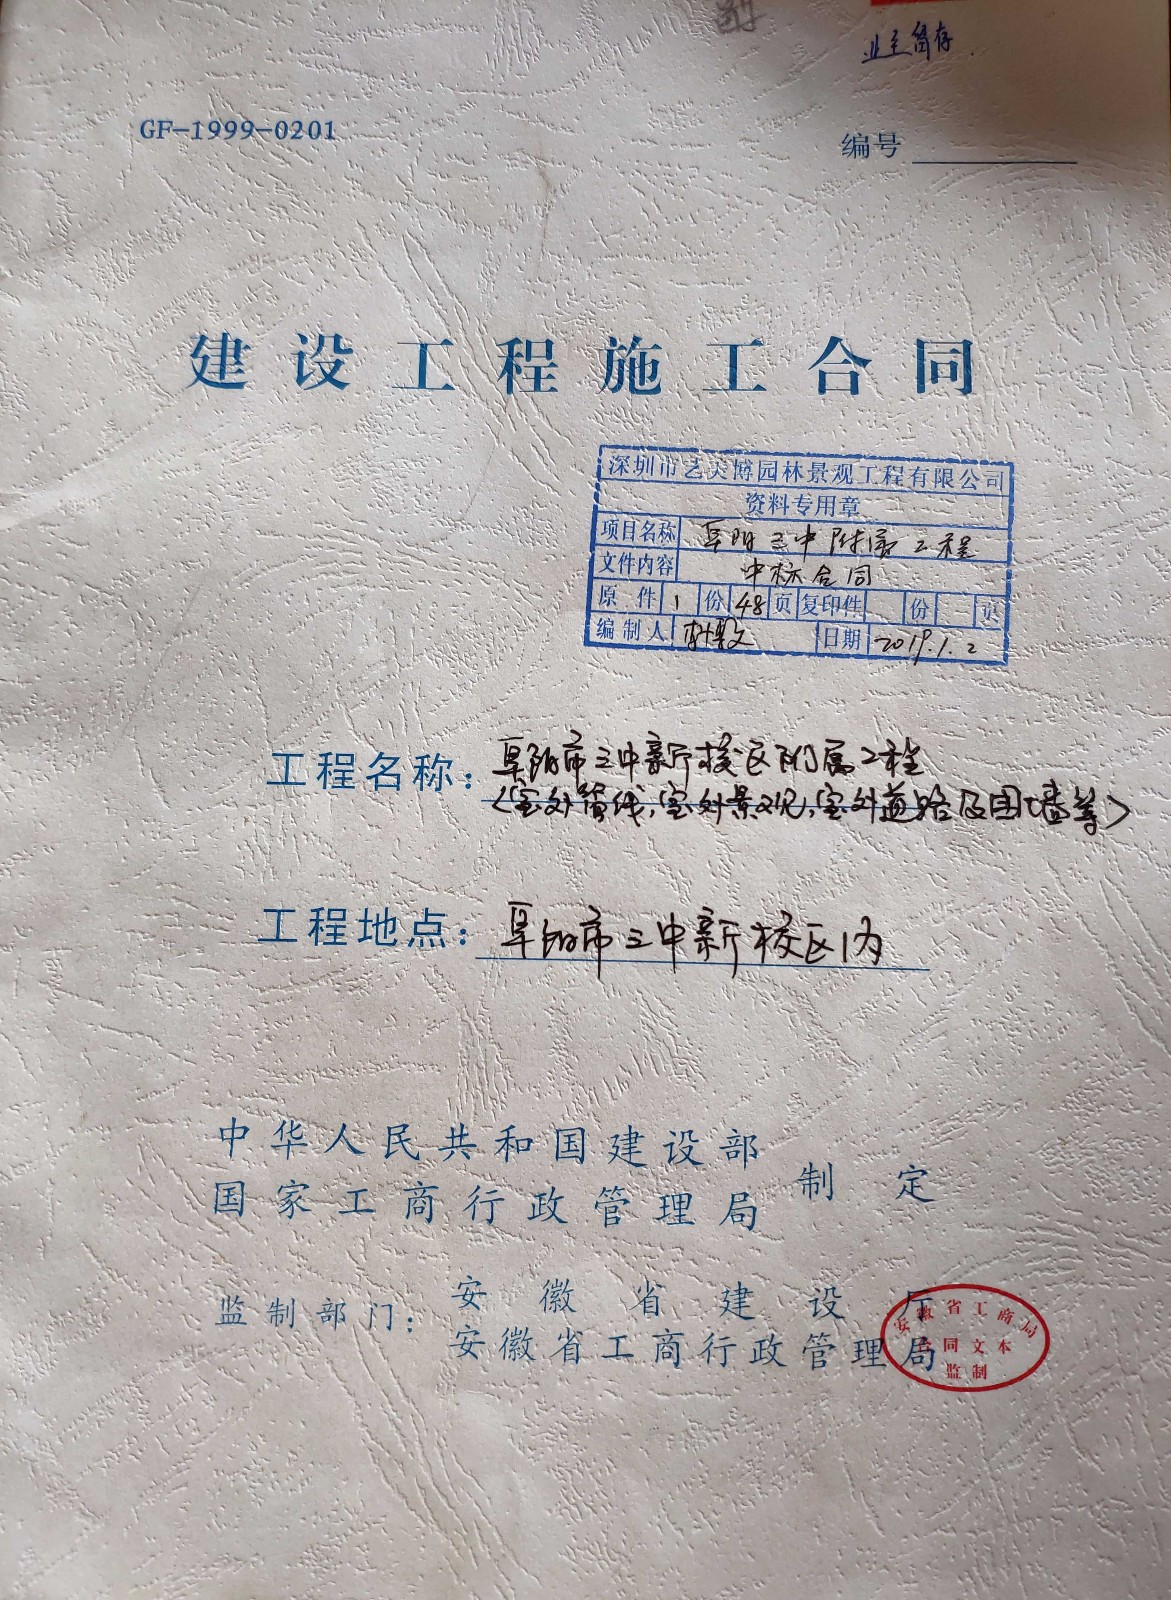 业主留存
GF-1999-0201
编号
建设工程施工合同
深圳市艺天博园林景观工程有限公司
资料专用章
项目名称 阜阳三中附属工程
文件内容 中标合同
原件 1 份 48 页 复印件 份 页
编制人 日期 2019.1.2
工程名称: 阜阳市三中新校区附属工程
(室外管线,室外景观,室外道路及围墙等)
工程地点: 阜阳市三中新校区内
中华人民共和国建设部
国家工商行政管理局
制定
监制部门:
安徽省建设厅
安徽省工商行政管理局
安徽省工商局
合同文本
监制